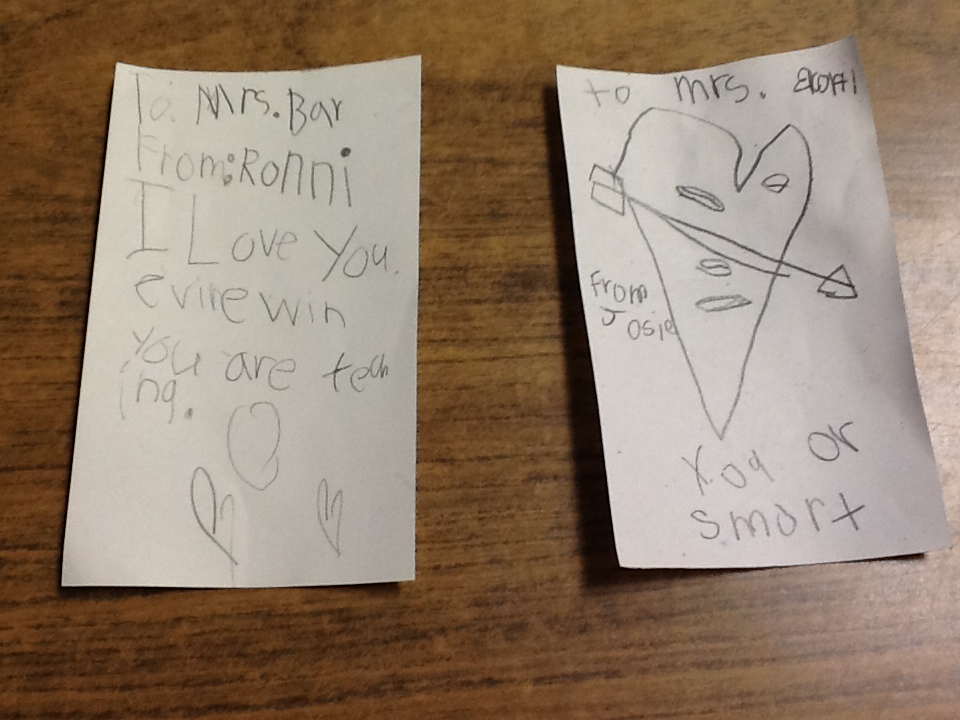 To: Mrs. Bar
From: Ronni
I Love You.
evire win
you are tech
ing.
to mrs.
From
Josie
You or
smart